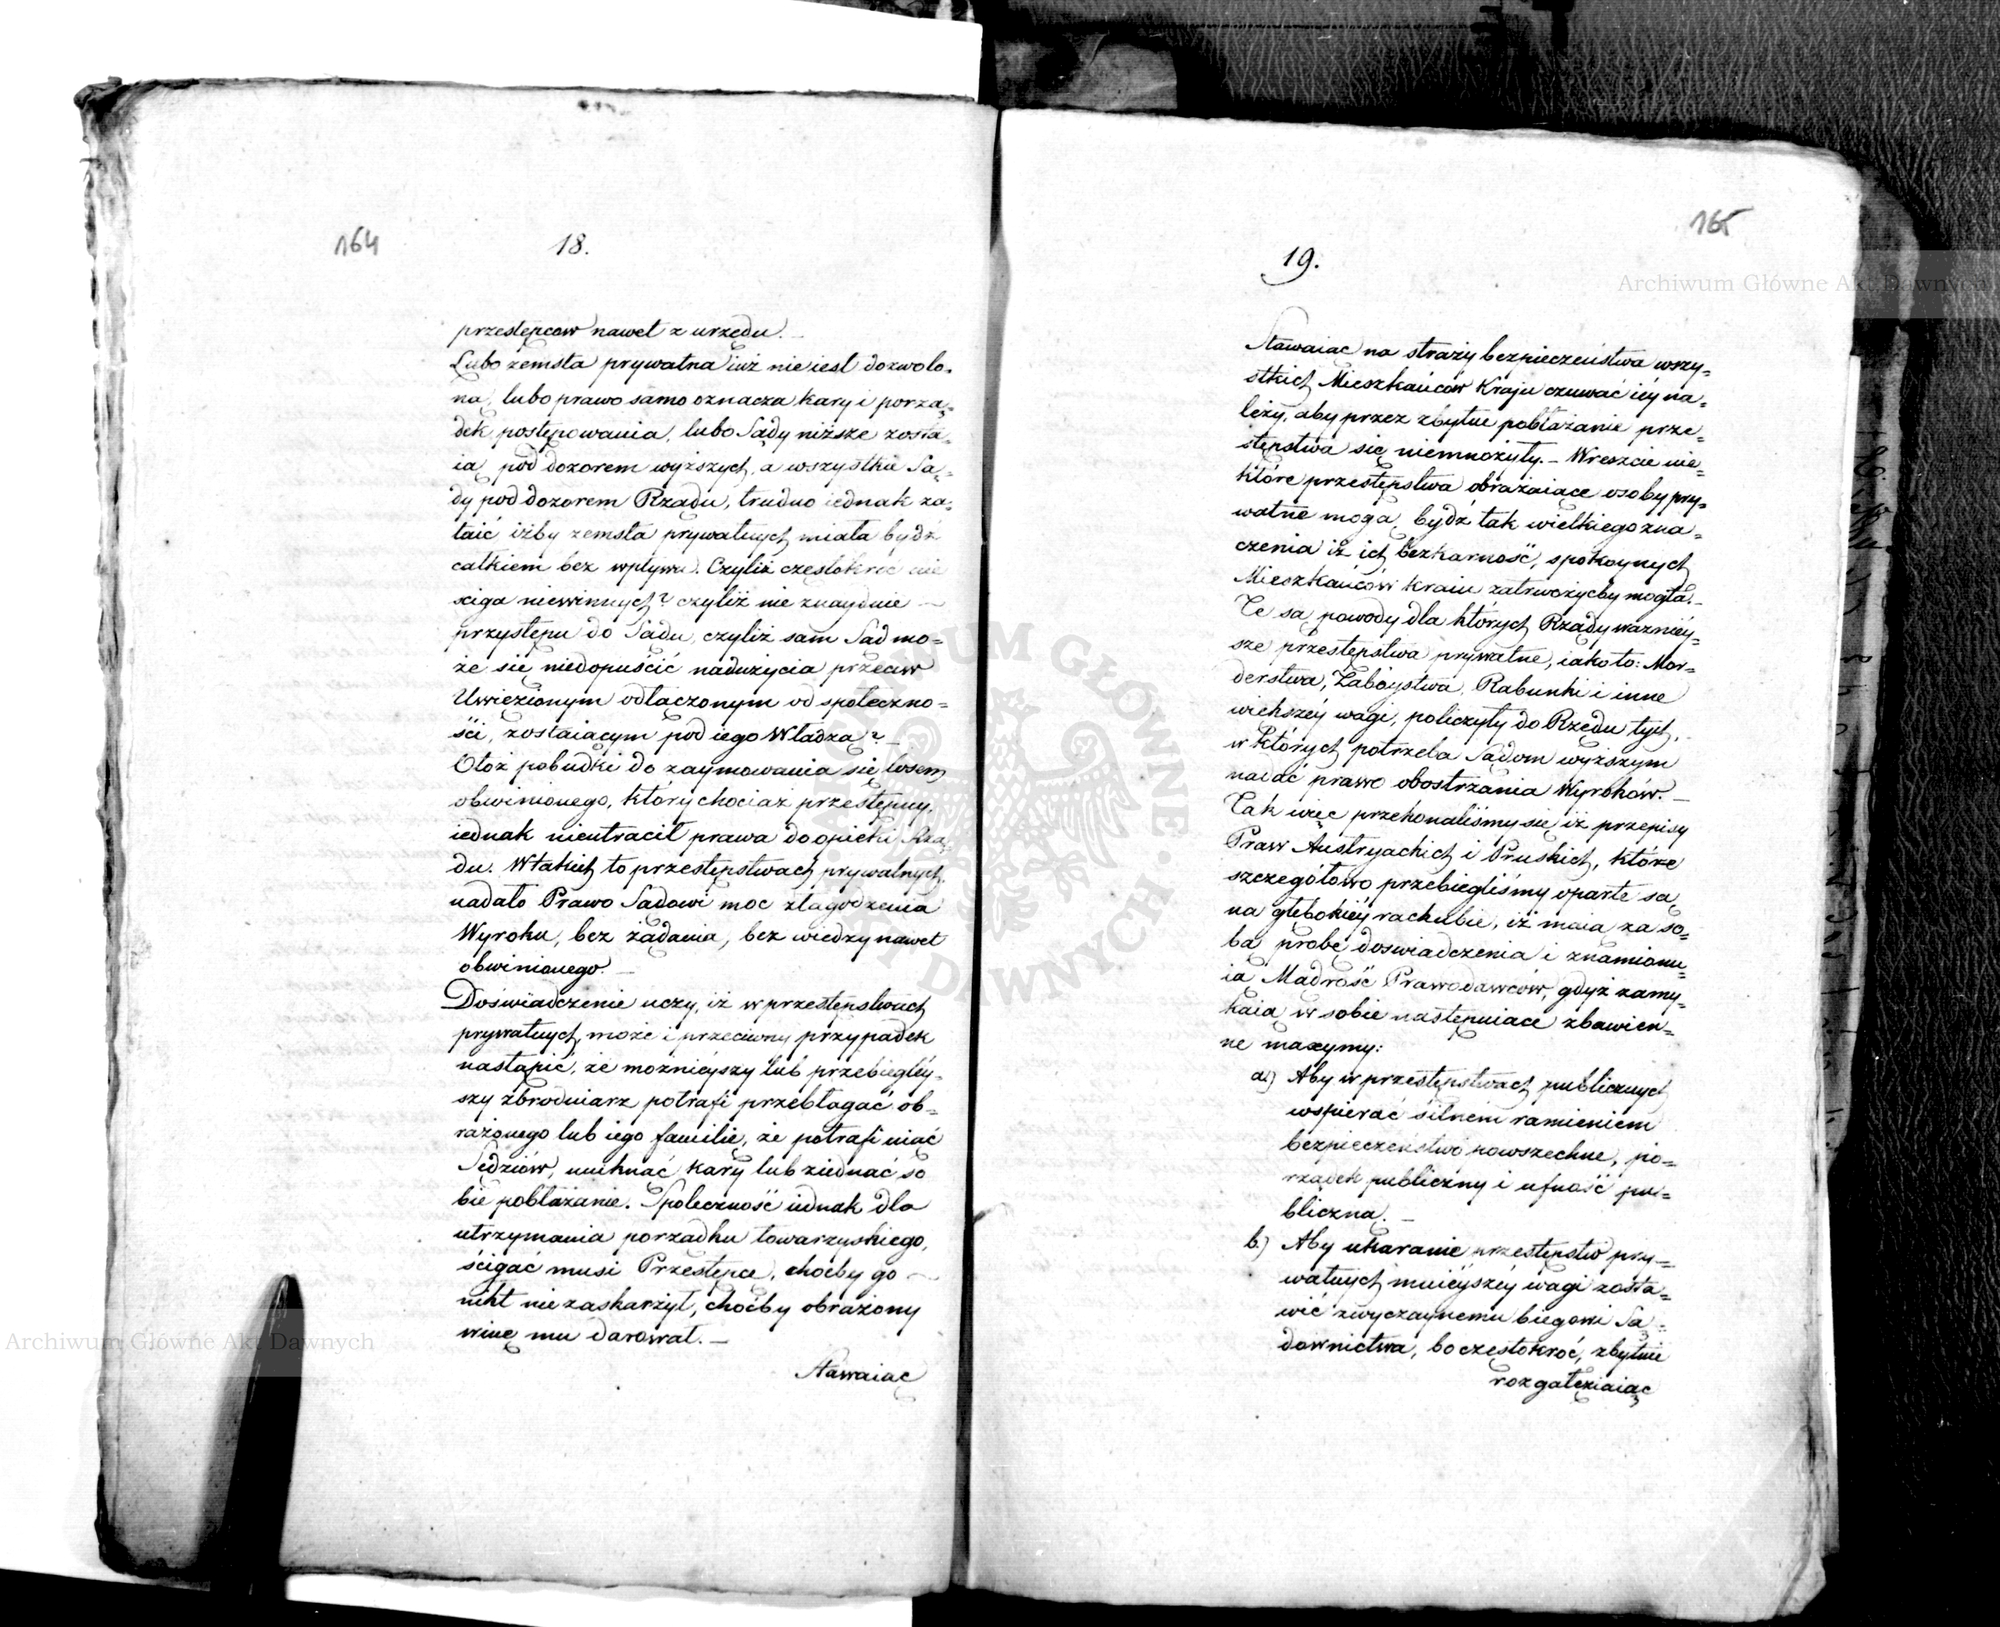 164
18.
przestępców nawet z urzędu. —
Lubo zemsta prywatna iuż nie iest dozwolo=
na, lubo prawo samo oznacza kary i porzą=
dek postępowania, lubo Sądy niższe zosta=
ią pod dozorem wyższych, a wszystkie Są=
dy pod dozorem Rządu, trudno iednak za=
taić iżby zemsta prywatnych miała bydź
całkiem bez wpływu. Czyliż częstokroć nie
sciga niewinnych? czyliż nie znayduie —
przystępu do Sądu, czyliż sam Sąd mo=
że się niedopuścić nadużycia przeciw
Uwięzionym odłączonym od społeczno=
ści, zostaiącym pod iego Władzą? —
Otoż pobudki do zaymowania się losem
obwinionego, który chociaż przestępny,
iednak nieutracił prawa do opieki Rzą=
du. W takich to przestępstwach prywatnych,
nadało Prawo Sądowi moc złagodzenia
Wyroku, bez żądania, bez wiedzy nawet
obwinionego. —
Doświadczenie uczy, iż w przestępstwach
prywatnych, może i przeciwny przypadek
nastąpić, że możnieyszy lub przebiegléy=
szy zbrodniarz potrafi przebłagać ob=
rażonego lub iego familię, że potrafi uiąć
Sędziów, uniknąć kary lub ziednać so
bie pobłażanie. Społeczność iednak dla
utrzymania porządku towarzyskiego,
ścigać musi Przestępcę, choćby go —
nikt nie zaskarżył, choćby obrażony
winę mu darował. —
Stawaiąc
165
19.
Stawaiąc na straży bezpieczeństwa wszy=
stkich Mieszkańców Kraju czuwać iéy na=
leży, aby przez zbytne pobłażanie prze=
stępstwa się niemnożyły. — Wreszcie nie=
które przestępstwa obrażaiące osoby pry=
watne mogą, bydź tak wielkiego zna=
czenia iż ich bezkarność, spokoynych
Mieszkańców kraiu zatrwożyćby mogła. —
Te są powody dla których Rządy ważniéy=
sze przestępstwa prywatne, iako to: Mor=
derstwa, Zabóystwa, Rabunki i inne
większéy wagi, policzyły do Rzędu tych,
w których potrzeba Sądom wyższym
nadać prawo obostrzania Wyroków. —
Tak więc przekonaliśmy się iż przepisy
Praw Austryackich i Pruskich, które
szczegółowo przebiegliśmy oparte są
na głębokiéy rachubie, iż maią za so=
bą probę doswiadczenia i znamionu=
ią Mądrość Prawodawców, gdyż zamy=
kaią w sobie następuiące zbawien=
ne maxymy:
a.) Aby w przestępstwach publicznych
wspierać silnem ramieniem
bezpieczeństwo powszechne, po=
rządek publiczny i ufność pu=
bliczną. —
b.) Aby ukaranie przestępstw pry=
watnych mniéyszéy wagi zosta=
wić zwyczaynemu biegowi Są=
downictwa, bo częstokroć, zbytnie
rozgałęziaiąc
Archiwum Główne Akt Dawnych
Archiwum Główne Akt Dawnych
ARCHIWUM GŁÓWNE AKT DAWNYCH